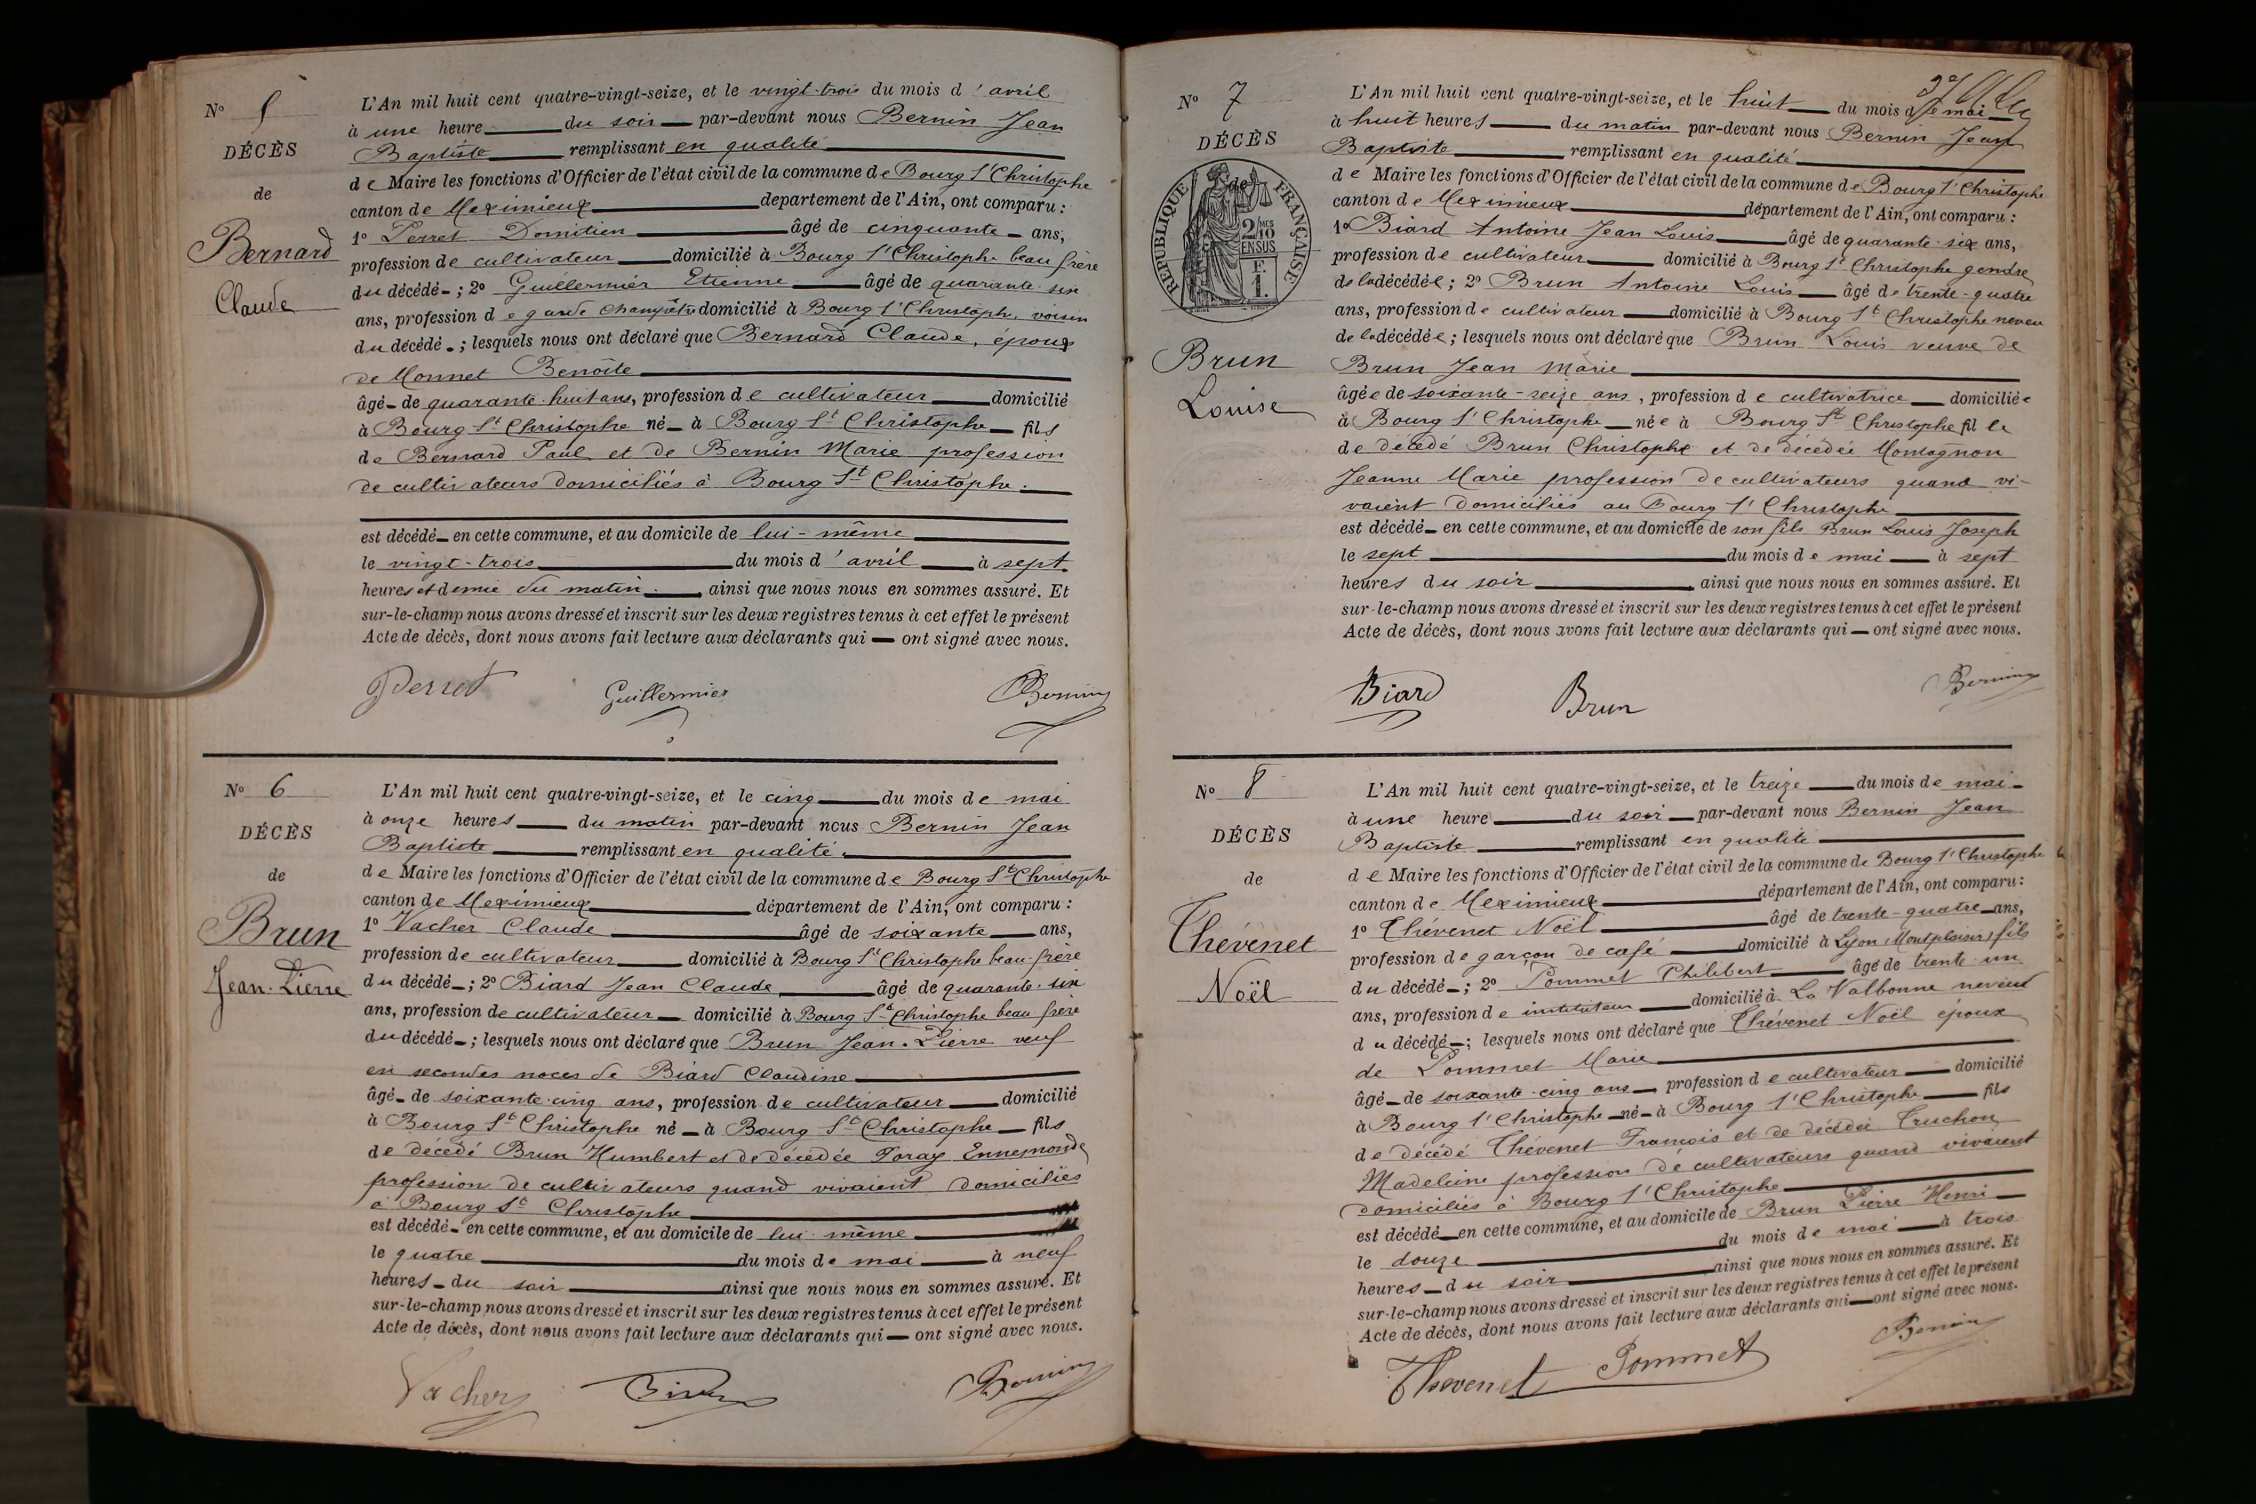 N° 5
DÉCÈS
de
Bernard
Claude
L'An mil huit cent quatre-vingt-seize, et le vingt-trois du mois d'avril
à une heure du soir par-devant nous Bernin Jean
Baptiste remplissant en qualité
de Maire les fonctions d'Officier de l'état civil de la commune de Bourg St Christophe
canton de Meximieux departement de l'Ain, ont comparu :
1° Perret Domitien âgé de cinquante ans,
profession de cultivateur domicilié à Bourg St Christophe beau frère
du décédé ; 2° Guillermier Etienne âgé de quarante six
ans, profession de garde champêtre domicilié à Bourg St Christophe, voisin
du décédé ; lesquels nous ont déclaré que Bernard Claude, époux
de Monnet Benoîte
âgé de quarante huit ans, profession de cultivateur domicilié
à Bourg St Christophe né à Bourg St Christophe fils
de Bernard Paul et de Bernin Marie profession
de cultivateurs domiciliés à Bourg St Christophe.
est décédé en cette commune, et au domicile de lui-même
le vingt-trois du mois d'avril à sept
heures et demie du matin ainsi que nous nous en sommes assuré. Et
sur-le-champ nous avons dressé et inscrit sur les deux registres tenus à cet effet le présent
Acte de décès, dont nous avons fait lecture aux déclarants qui ont signé avec nous.
Perret Guillermier Bernin
N° 6
DÉCÈS
de
Brun
Jean-Pierre
L'An mil huit cent quatre-vingt-seize, et le cinq du mois de mai
à onze heures du matin par-devant nous Bernin Jean
Baptiste remplissant en qualité
de Maire les fonctions d'Officier de l'état civil de la commune de Bourg St Christophe
canton de Meximieux département de l'Ain, ont comparu :
1° Vacher Claude âgé de soixante ans,
profession de cultivateur domicilié à Bourg St Christophe beau-frère
du décédé ; 2° Biard Jean Claude âgé de quarante-six
ans, profession de cultivateur domicilié à Bourg St Christophe beau frère
du décédé ; lesquels nous ont déclaré que Brun Jean-Pierre veuf
en secondes noces de Biard Claudine
âgé de soixante-cinq ans, profession de cultivateur domicilié
à Bourg St Christophe né à Bourg St Christophe fils
de décédé Brun Humbert et de décédée Foray Ennemonde
profession de cultivateurs quand vivaient domiciliés
à Bourg St Christophe
est décédé en cette commune, et au domicile de lui-même
le quatre du mois de mai à neuf
heures du soir ainsi que nous nous en sommes assuré. Et
sur-le-champ nous avons dressé et inscrit sur les deux registres tenus à cet effet le présent
Acte de décès, dont nous avons fait lecture aux déclarants qui ont signé avec nous.
Vacher Bernin
N° 7
DÉCÈS
de
RÉPUBLIQUE FRANÇAISE
2/10 MES
EN SUS
F.
1.
Brun
Louise
L'An mil huit cent quatre-vingt-seize, et le huit du mois de mai
à huit heures du matin par-devant nous Bernin Jean
Baptiste remplissant en qualité
de Maire les fonctions d'Officier de l'état civil de la commune de Bourg St Christophe
canton de Meximieux département de l'Ain, ont comparu :
1° Biard Antoine Jean Louis âgé de quarante-six ans,
profession de cultivateur domicilié à Bourg St Christophe gendre
de la décédée ; 2° Brun Antoine Louis âgé de trente-quatre
ans, profession de cultivateur domicilié à Bourg St Christophe neveu
de la décédée ; lesquels nous ont déclaré que Brun Louis veuve de
Brun Jean Marie
âgée de soixante-seize ans, profession de cultivatrice domiciliée
à Bourg St Christophe née à Bourg St Christophe fille
de décédé Brun Christophe et de décédée Montagnon
Jeanne Marie profession de cultivateurs quand vi-
vaient domiciliés au Bourg St Christophe
est décédé en cette commune, et au domicile de son fils Brun Louis Joseph
le sept du mois de mai à sept
heures du soir ainsi que nous nous en sommes assuré. Et
sur-le-champ nous avons dressé et inscrit sur les deux registres tenus à cet effet le présent
Acte de décès, dont nous avons fait lecture aux déclarants qui ont signé avec nous.
Biard Brun Bernin
N° 8
DÉCÈS
de
Thévenet
Noël
L'An mil huit cent quatre-vingt-seize, et le treize du mois de mai
à une heure du soir par-devant nous Bernin Jean
Baptiste remplissant en qualité
de Maire les fonctions d'Officier de l'état civil de la commune de Bourg St Christophe
canton de Meximieux département de l'Ain, ont comparu :
1° Thévenet Noël âgé de trente-quatre ans,
profession de garçon de café domicilié à Lyon (Montplaisir) fils
du décédé ; 2° Pommet Philibert âgé de trente un
ans, profession de instituteur domicilié à La Valbonne neveu
du décédé ; lesquels nous ont déclaré que Thévenet Noël époux
de Pommet Marie
âgé de soixante-cinq ans profession de cultivateur domicilié
à Bourg St Christophe né à Bourg St Christophe fils
de décédé Thévenet François et de décédée Truchon
Madeleine profession de cultivateurs quand vivaient
domiciliés à Bourg St Christophe
est décédé en cette commune, et au domicile de Brun Pierre Henri
le douze du mois de mai à trois
heures du soir ainsi que nous nous en sommes assuré. Et
sur-le-champ nous avons dressé et inscrit sur les deux registres tenus à cet effet le présent
Acte de décès, dont nous avons fait lecture aux déclarants qui ont signé avec nous.
Thevenet Pommet Bernin